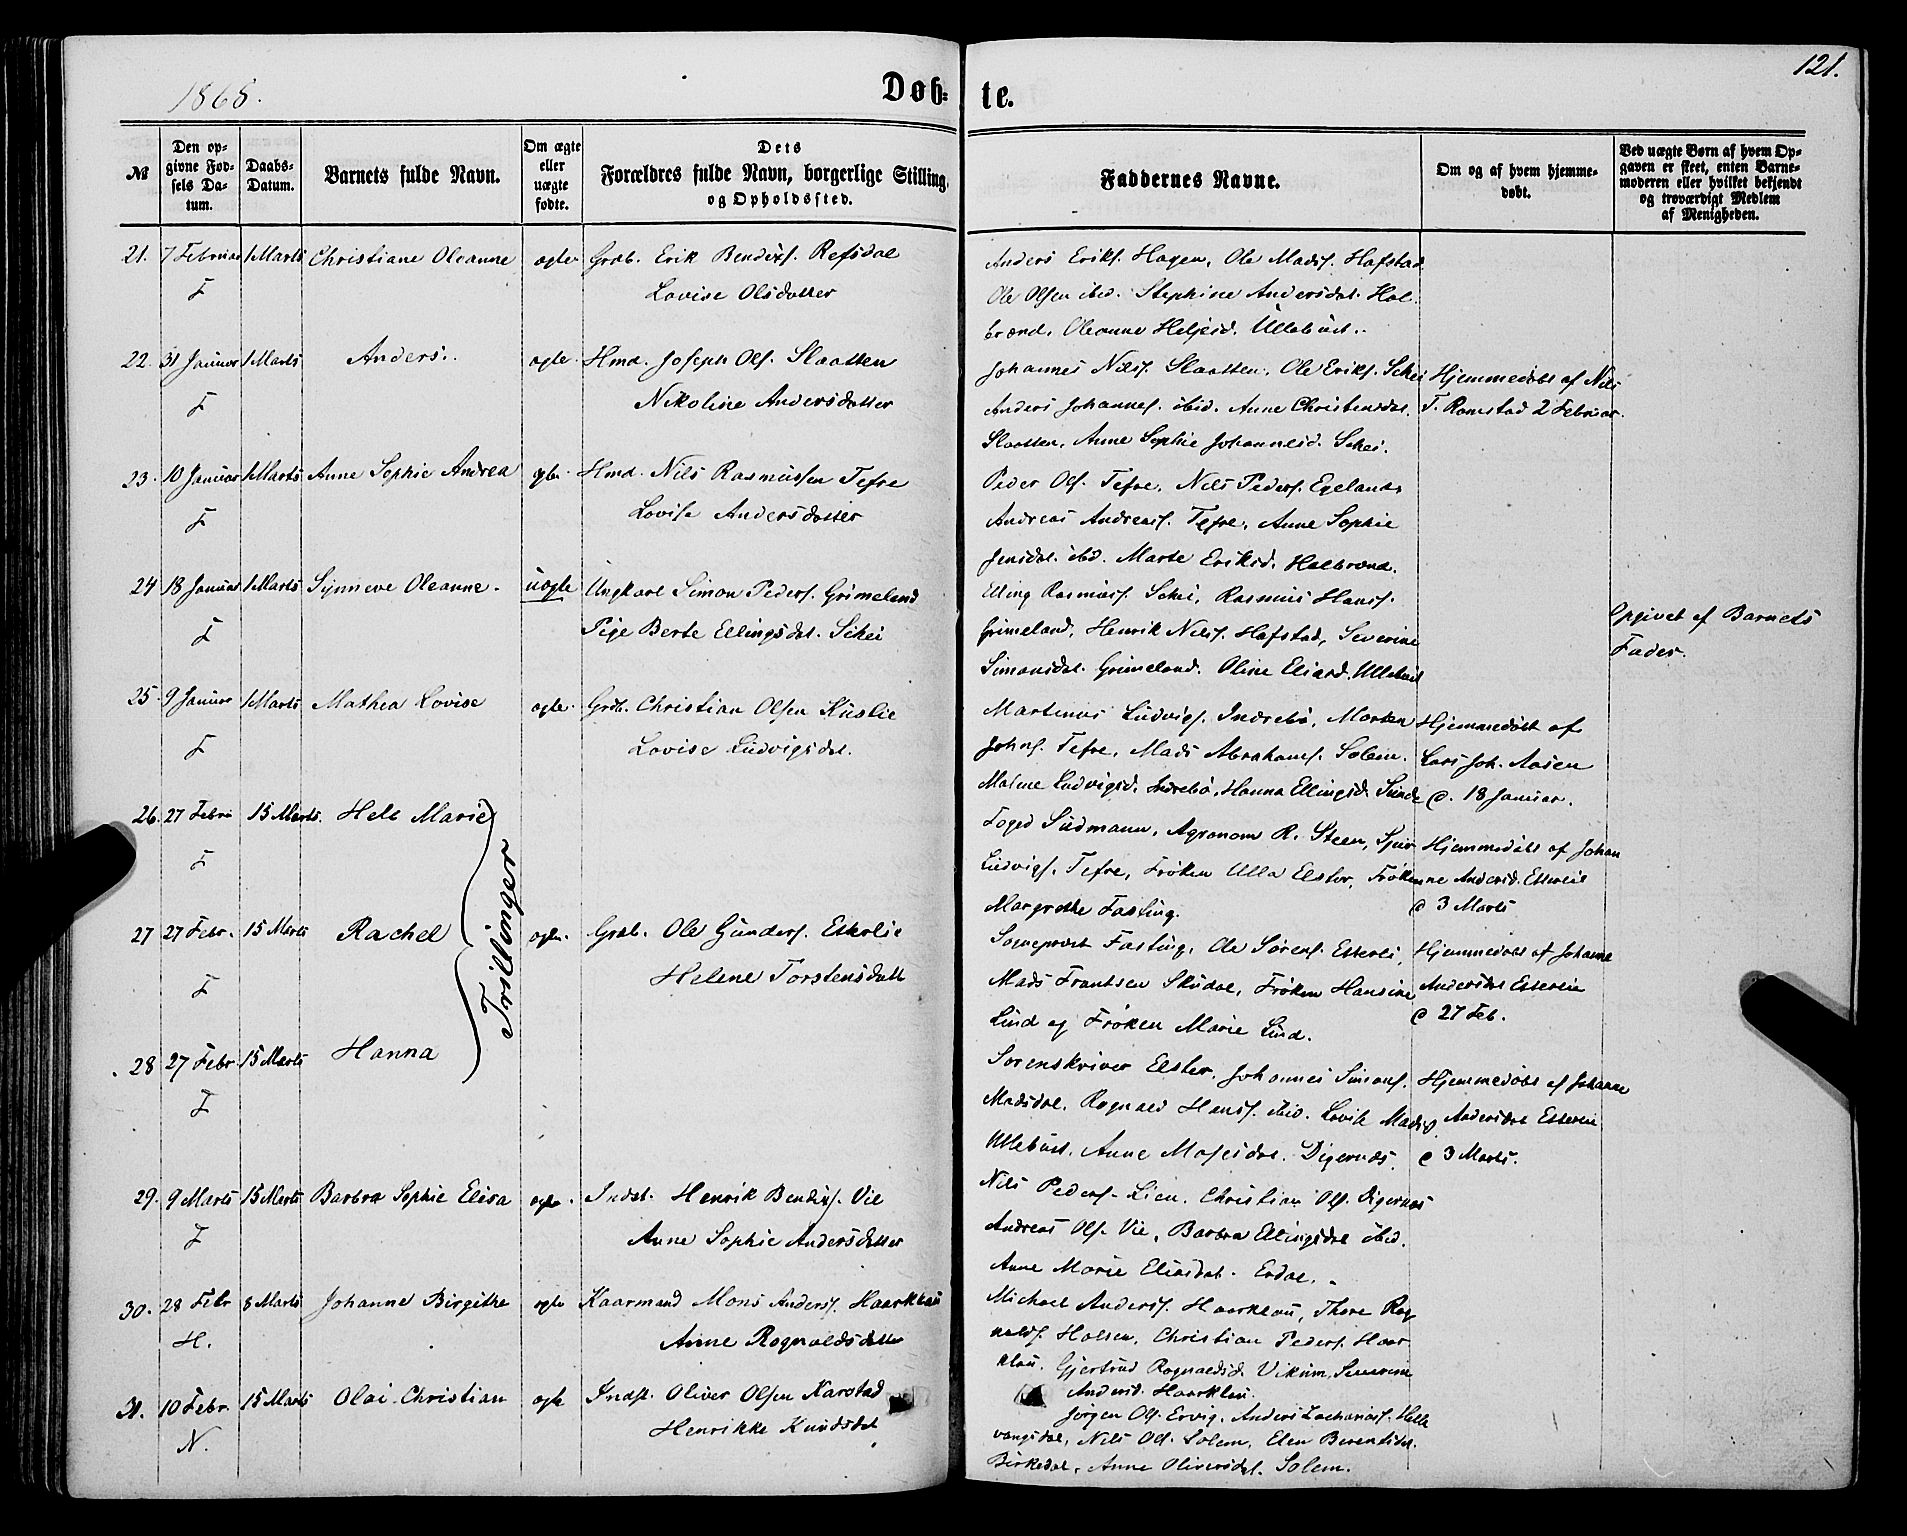 121.
1868.
Døb- te.
№
Den op-
givne Fød-
sels Da-
tum.
Daabs-
Datum.
Barnets fulde Navn.
Om ægte
eller
uægte
fødte.
Dets
Forældres fulde Navn, borgerlige Stilling,
og Opholdssted.
Faddernes Navne.
Om og af hvem hjemme-
døbt.
Ved uægte Børn af hvem Op-
gaven er skeet, enten Barne-
moderen eller hvilket bekjendt
og troværdigt Medlem
af Menigheden.
21. 7 Februar 1 Marts Christiane Oleanne ægte Grdb. Erik Bendixs. Refsdal
F
Lovise Olsdatter
Anders Eriks. Hagen, Ole Mads. Hafstad
Ole Olsen ibid. Stephine Andersdat. Hal-
brænd, Oleanne Heljesd. Ullebust.
22. 31 Januar 1 Marts Anders. ægte Hmd. Joseph Ols. Slaatten
F
Nikoline Andersdatter
Johannes Nils. Slaatten, Ole Eriks. Schei
Anders Johannes. ibid. Anne Christensdat.
Slaatten, Anne Sophie Johannesd. Schei.
Hjemmedøbt af Nils
T. Ramstad 2 Februar.
23. 10 Januar 1 Marts Anne Sophie Andrea ægte Hmd. Nils Rasmussen Tefre
F
Lovise Andersdatter
Peder Ols. Tefre, Nils Peders. Egeland,
Andreas Andreass. Tefre, Anne Sophie
Jensdat. ibid. Marte Eriksd. Halbrend.
24 18 Januar 1 Marts Synneve Oleanne. uægte Ungkarl Simon Peders. Grimeland
F
Pige Berte Ellingsdat. Schei
Elling Rasmus. Schei, Rasmus Hans.
Grimeland, Henrik Nils. Hafstad, Severine
Simonsdat. Grimeland. Oline Eliasd. Ullebust
Opgivet af Barnets
Fader.
25. 9 Januar 1 Marts Mathea Lovise ægte. Grdb. Christian Olsen Kuslie
F
Lovise Ludvigsdat.
Martinus Ludvigs. Indrebø, Morten
Johns. Tefre, Mads Abrahams. Solem.
Malene Ludvigsd. Indrebø, Hanna Ellingsd. Sunde
Hjemmedøbt af
Lars Joh. Aasen
d. 18 Januar.
26. 27 Febr 15 Marts. Hele Marie
F
Foged Sudmann, Agronom R. Steen, Sjur
Ludvigs. Tefre, Frøken Ulla Elster, Frøken
Margrethe Fasting.
Hjemmedøbt af Johan
ne Andersd. Esterlie
d 3 Marts
Trillinger
27 27 Febr. 15 Marts Rachel ægte. Grdb. Ole Gunders. Esterlie
F
Helene Torstensdatt
Sogneprest Fasting, Ole Sørens. Esterli,
Mads Frantsen Skudal, Frøken Hansine
Lind og Frøken Marie Lind.
Hjemmedøbt af Johanne
Andersdat Esterlie
d 27 Feb.
28 27 Febr 15 Marts Hanna
F
Sorenskriver Elster, Johannes Simons.
Madsdal, Ragnald Hans. ibid. Lovise Madsd.
Ullebust, Anne Mosesdat. Digernæs.
Hjemmedøbt af Johanne
Andersdat Esterlie
d 3 Marts.
29. 9 Marts 15 Marts Barbra Sophie Elisa ægte. Indst. Henrik Bendixs. Vie
F
Anne Sophie Andersdatter
Nils Peders. Lien, Christian Ols. Digernæs
Andreas Ols. Vie, Barbra Ellingsdat ibid.
Anne Marie Eliasdat. Erdal.
30. 28 Febr 8 Marts Johanne Birgithe ægte Kaarmand Mons Anders. Haarklau
H.
Anne Ragnaldsdatter
Michael Anders. Haarklau, Thore Rag
nalds. Holsen, Christian Peders. Haar
klau. Gjertrud Ragnaldsd. Vikum, Severine
Andersd. Haarklau.
31. 10 Febr. 15 Marts Olai Christian ægte Indst. Oliver Olsen Karstad
N.
Henrikke Knudsdat
Jørgen Ols. Ervig, Anders Zacharias. Helle
vangsdal, Nils Ols. Solem, Elen Berentsdat.
Birkedal, Anne Oliversdat. Solem.